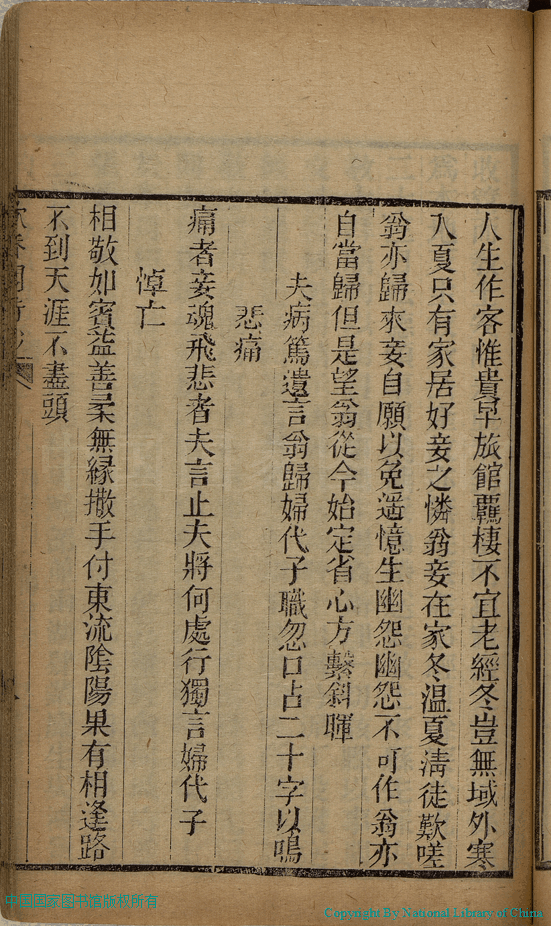 人生作客惟貴早旅館羈棲不宜老經冬豈無域外寒
入夏只有家居好妾之憐翁妾在家冬温夏凊徒歎嗟
翁亦歸來妾自願以免遥憶生幽怨幽怨不可作翁亦
自當歸但是望翁從今始定省心方繫斜暉
夫病篤遺言翁歸婦代子職忽口占二十字以鳴
悲痛
痛者妾魂飛悲者夫言止夫將何處行獨言婦代子
悼亡
相敬如賓益善柔無縁撒手付東流隂陽果有相逢路
不到天涯不盡頭
中国国家图书馆版权所有
Copyright By National Library of China